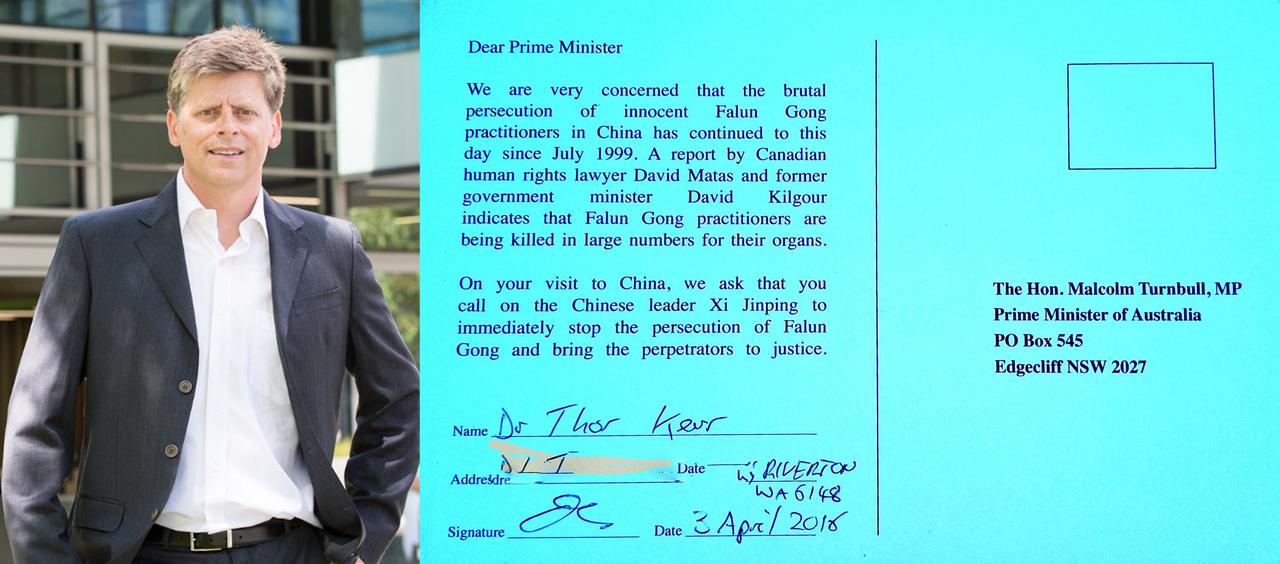 Dear Prime Minister
We are very concerned that the brutal
persecution of innocent Falun Gong
practitioners in China has continued to this
day since July 1999. A report by Canadian
human rights lawyer David Matas and former
government minister David Kilgour
indicates that Falun Gong practitioners are
being killed in large numbers for their organs.
On your visit to China, we ask that you
call on the Chinese leader Xi Jinping to
immediately stop the persecution of Falun
Gong and bring the perpetrators to justice.
Name Dr Thor Kerr
Date RIVERTON
WA 6148
Signature Date 3 April 2016
The Hon. Malcolm Turnbull, MP
Prime Minister of Australia
PO Box 545
Edgecliff NSW 2027